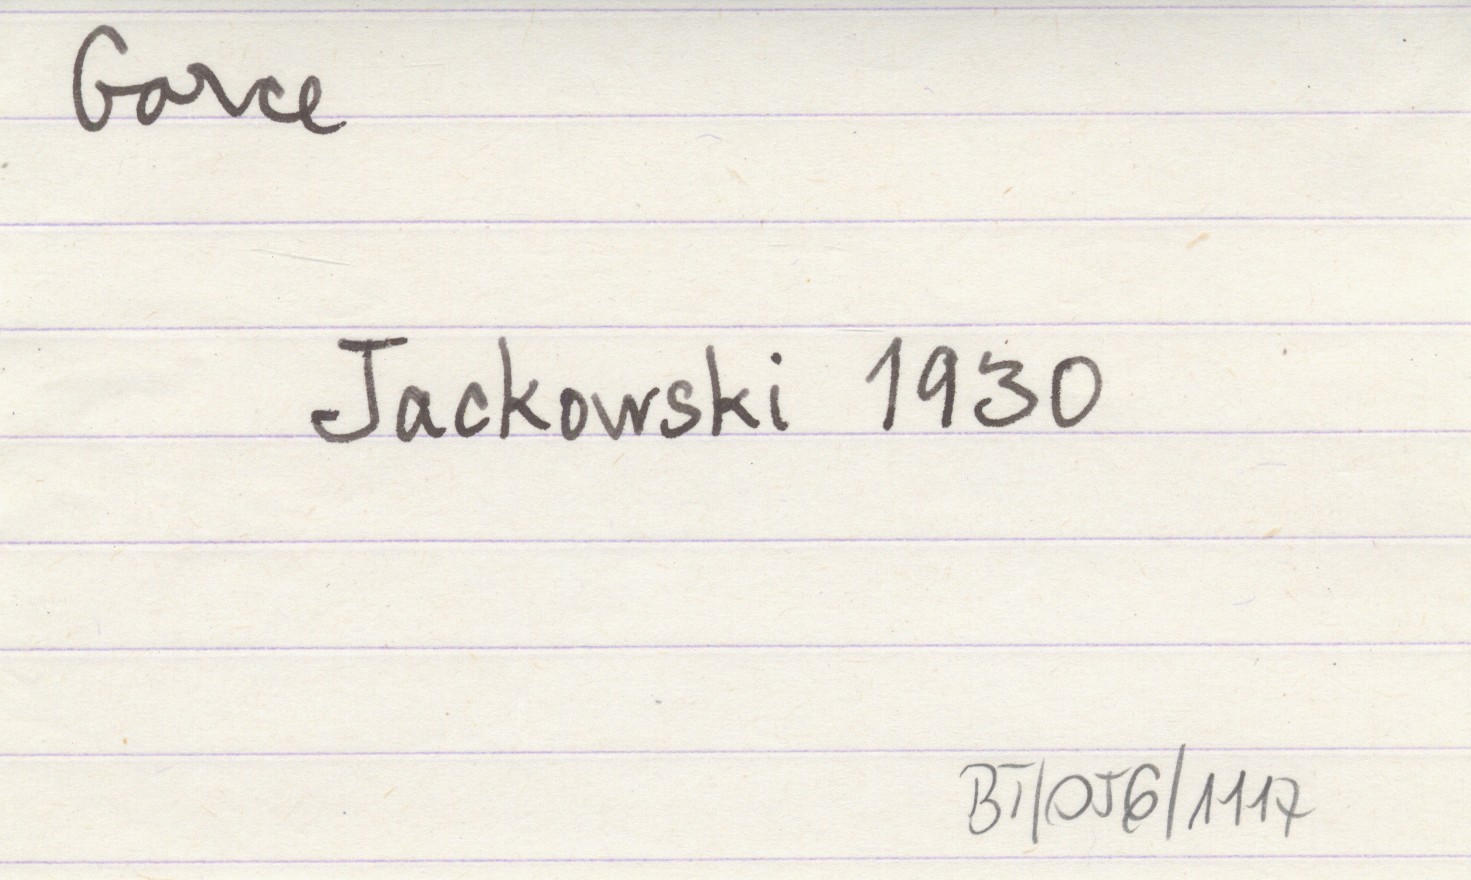 Garce
Jackowski 1930
BT/OJG/1117